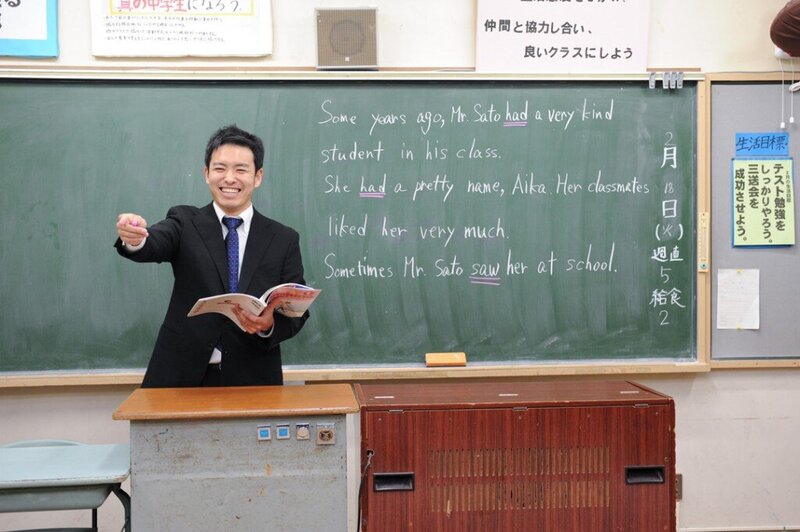 真の中学生になろう。
仲間と協力し合い、
良いクラスにしよう
Some years ago, Mr. Sato had a very kind
student in his class.
She had a pretty name, Aika. Her classmates
liked her very much.
Sometimes Mr. Sato saw her at school.
2月18日(火)
週直
5
給食
2
生活目標
テスト勉強を
しっかりやろう。
三送会を
成功させよう。